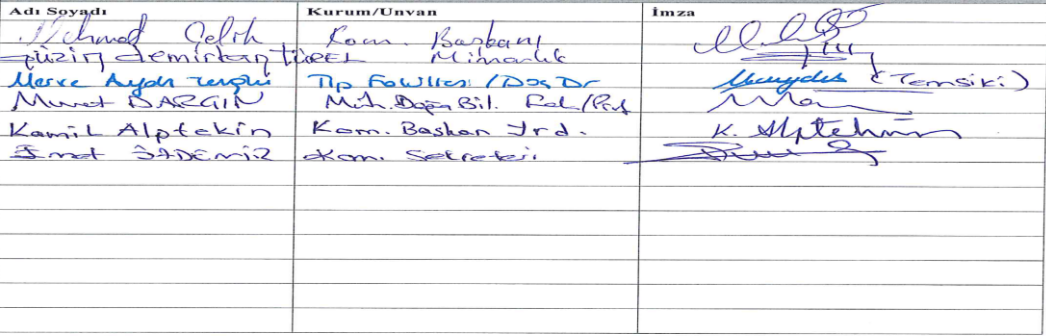 Adı Soyadı Kurum/Unvan İmza
Mehmed Çelik Kom. Başkanı
güzin demirkan türel Mimarlık
Merve Aydın Tıp Fakültesi / Doç Dr (Temsili)
Murat DARGIN Müh. Doğa Bil. Fak/Prof
Kamil Alptekin Kom. Başkan Yrd. K. Alptekin
Kom. Sekreteri